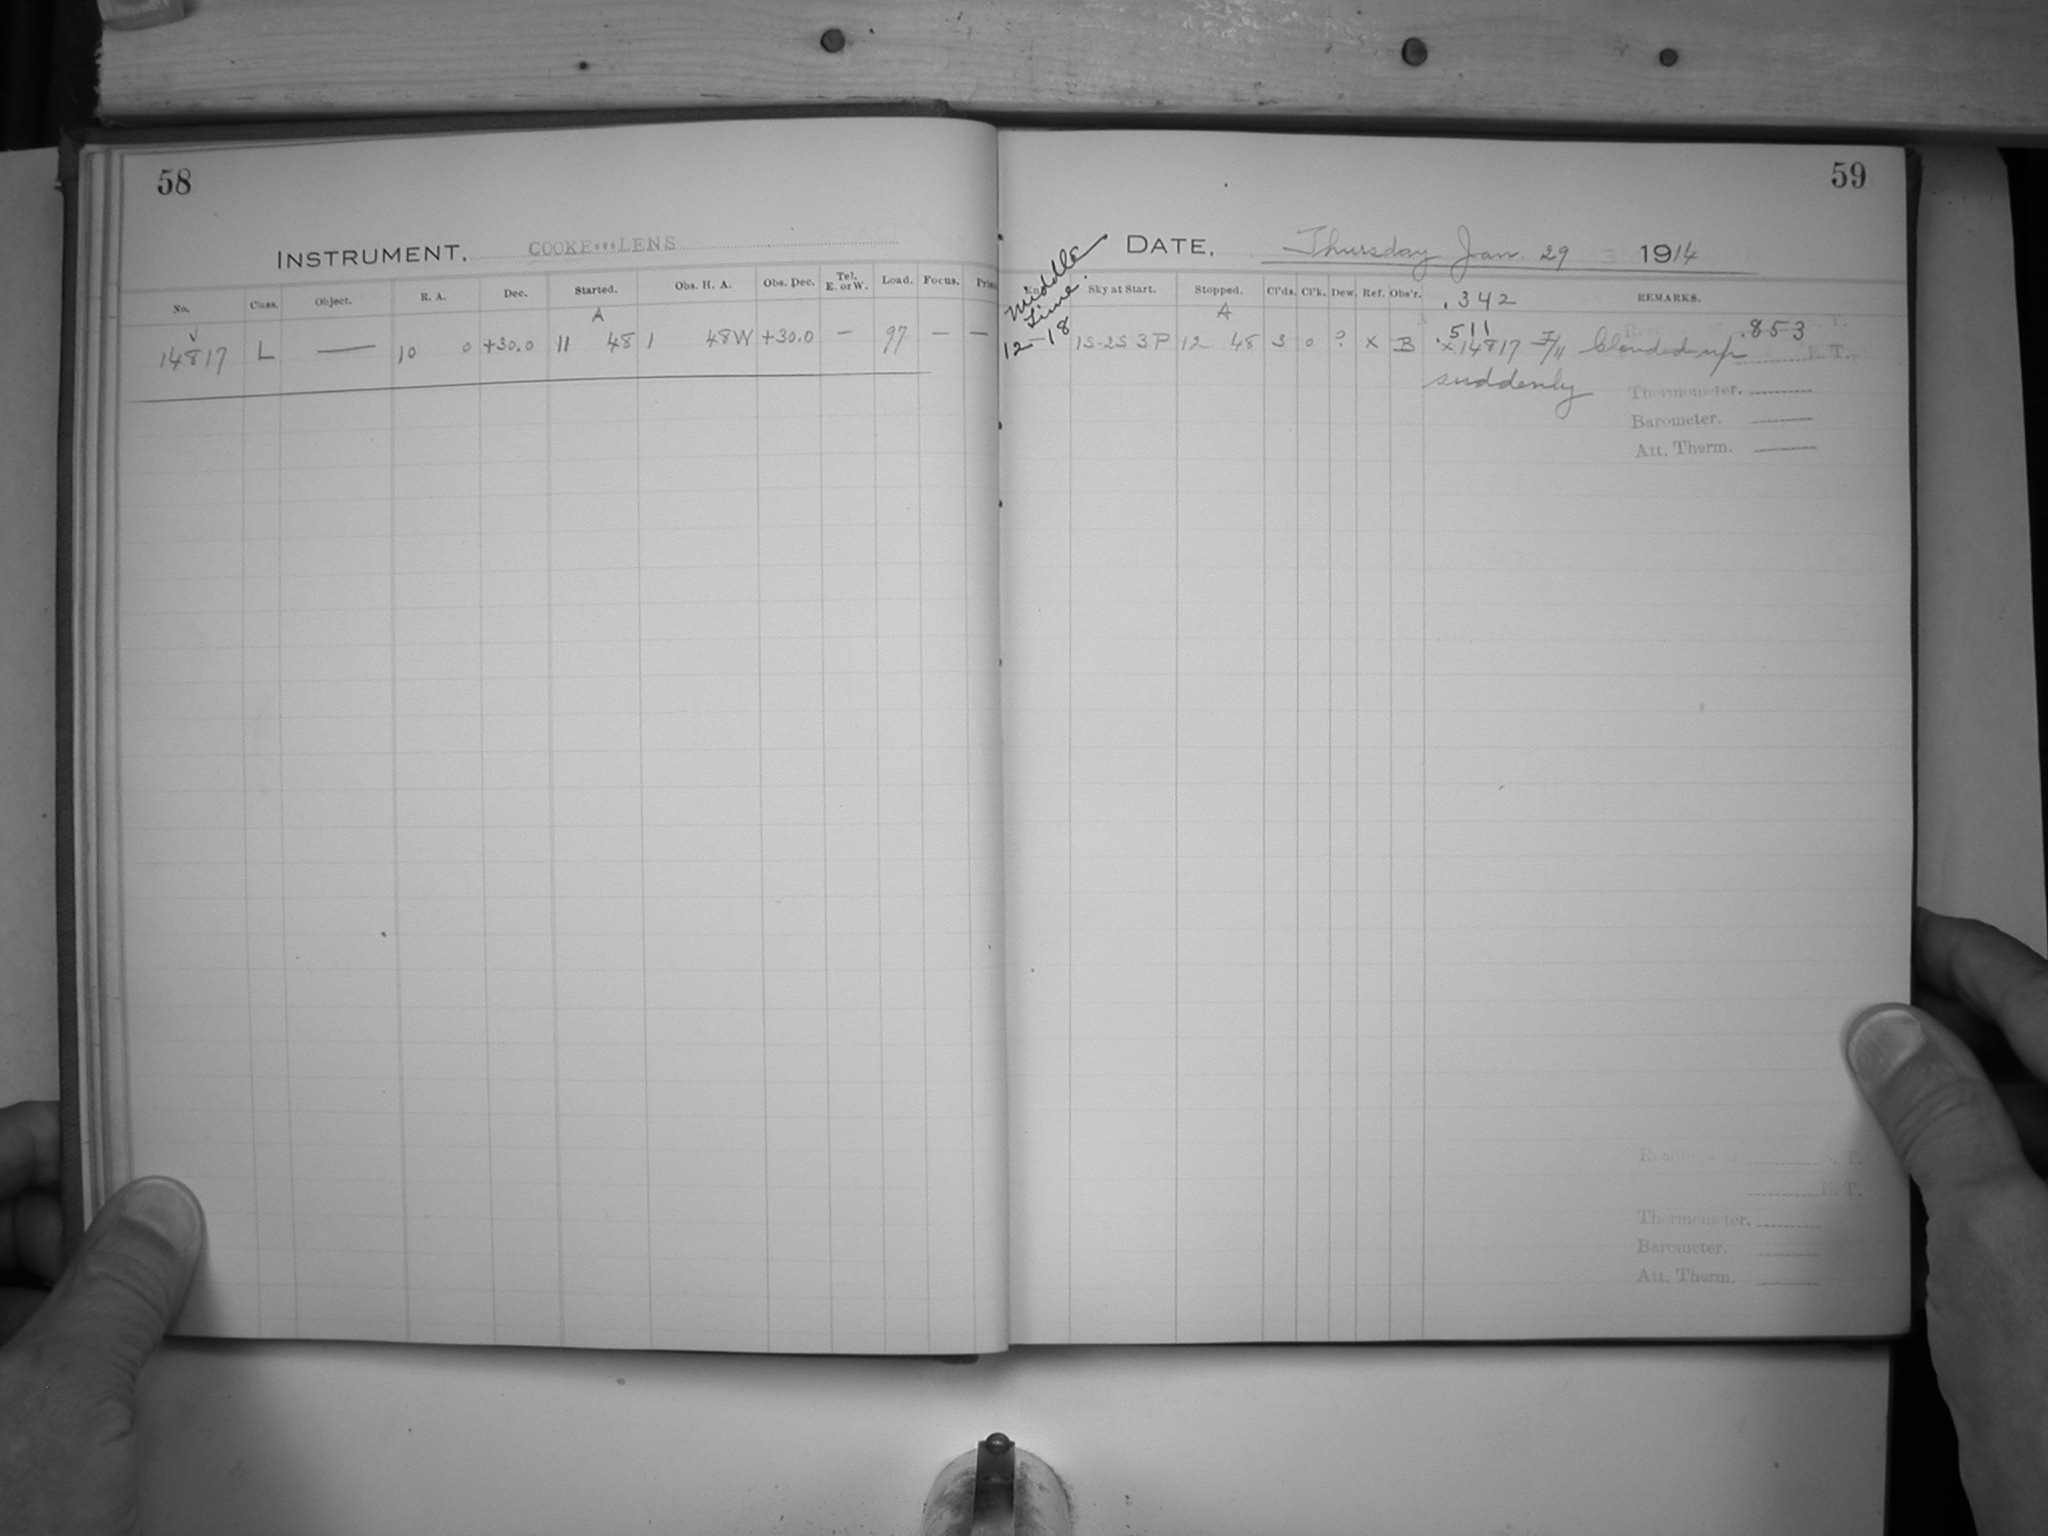 58
INSTRUMENT, COOKE LENS
No. Class. Object. R. A. Dec. Started. Obs. H. A. Obs. Dec. Tel. E. or W. Load. Focus.
A
14817 L — 10 0 +30.0 11 48 1 48W +30.0 — 97 — —
59
DATE, Thursday Jan. 29 1914
Middle
time
12-18
Sky at Start. Stopped. Cl'ds. Cl'k. Dew. Ref. Obs'r. .342 REMARKS.
A
.511 .853
1S-2S 3P 12 48 3 0 ? x B x14817 F/11 Clouded up
suddenly
Thermometer.
Barometer.
Att. Therm.
E. T.
Thermometer.
Barometer.
Att. Therm.